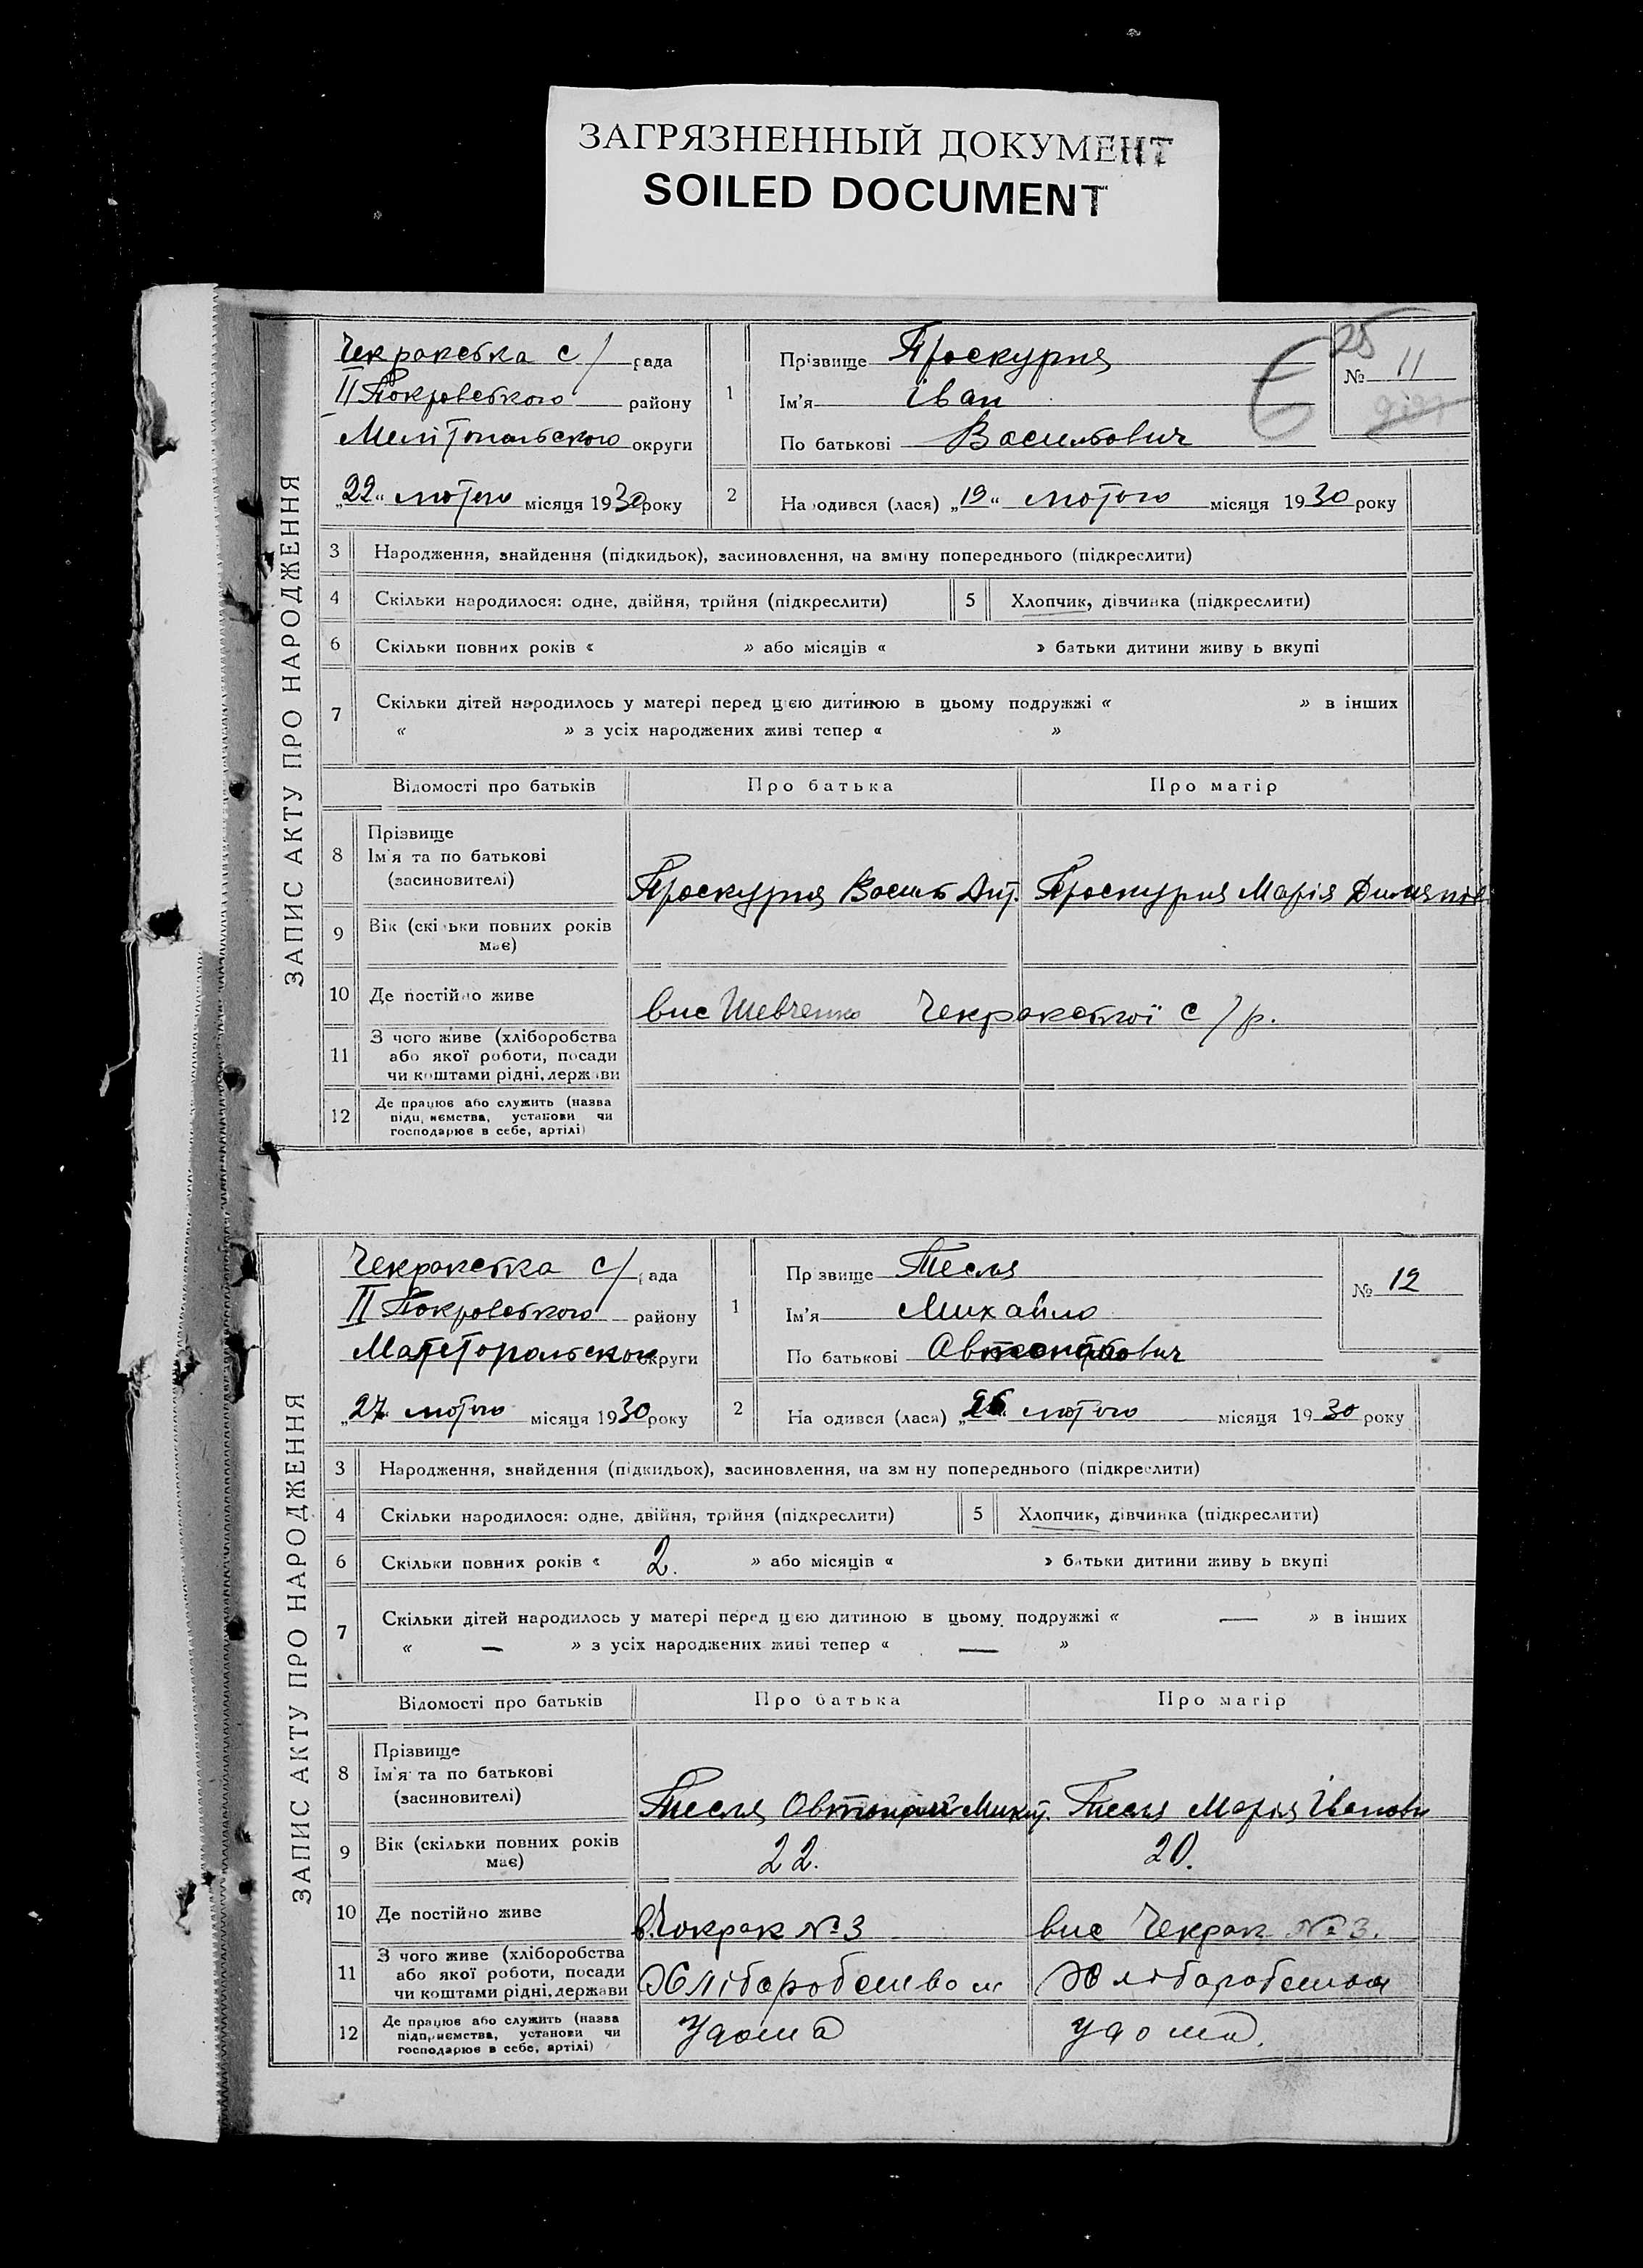 ЗАГРЯЗНЕННЫЙ ДОКУМЕНТ
SOILED DOCUMENT
ЗАПИС АКТУ ПРО НАРОДЖЕННЯ
Чекракська с/рада
ІІ Покровського району
Мелітопольського округи
„22“ лютого місяця 1930 року
1
Прізвище Проскурня
Ім'я Іван
По батькові Васильович
25
№ 11
2
На одився (лася) „19“ лютого місяця 1930 року
3 Народження, знайдення (підкидьок), засиновлення, на зміну попереднього (підкреслити)
4 Скільки народилося: одне, двійня, трійня (підкреслити) 5 Хлопчик, дівчинка (підкреслити)
6 Скільки повних років « » або місяців « » батьки дитини живу ь вкупі
7 Скільки дітей народилось у матері перед цією дитиною в цьому подружжі « » в інших
« » з усіх народжених живі тепер « »
Відомості про батьків Про батька Про матір
8 Прізвище
Ім'я та по батькові
(засиновителі)
Проскурня Василь Проскурня Марія
9 Вік (скі ьки повних років
має)
10 Де постійно живе вис Шевченко Чекракської с/р.
11 З чого живе (хліборобства
або якої роботи, посади
чи коштами рідні, держави
12 Де працює або служить (назва
підприємства, установи чи
господарює в себе, артілі)
ЗАПИС АКТУ ПРО НАРОДЖЕННЯ
Чекракська с/ ада
ІІ Покровського району
округи
„27“ лютого місяця 1930 року
1
Пр звище Тесля
Ім'я Михайло
По батькові
№ 12
2
На одився (лася) „26“ лютого місяця 1930 року
3 Народження, знайдення (підкидьок), засиновлення, на зм ну попереднього (підкреслити)
4 Скільки народилося: одне, двійня, трійня (підкреслити) 5 Хлопчик, дівчинка (підкреслити)
6 Скільки повних років « 2. » або місяців « » батьки дитини живу ь вкупі
7 Скільки дітей народилось у матері перед цією дитиною в цьому подружжі « — » в інших
« — » з усіх народжених живі тепер « — »
Відомості про батьків Про батька Про матір
8 Прізвище
Ім'я та по батькові
(засиновителі)
Тесля Тесля Марія Іванови
9 Вік (скільки повних років
має)
22. 20.
10 Де постійно живе в. Чокрак №3 вис Чекрак №3.
11 З чого живе (хліборобства
або якої роботи, посади
чи коштами рідні, держави
Хліборобством Хліборобством
12 Де працює або служить (назва
підприємства, установи чи
господарює в себе, артілі)
Удома Удома.